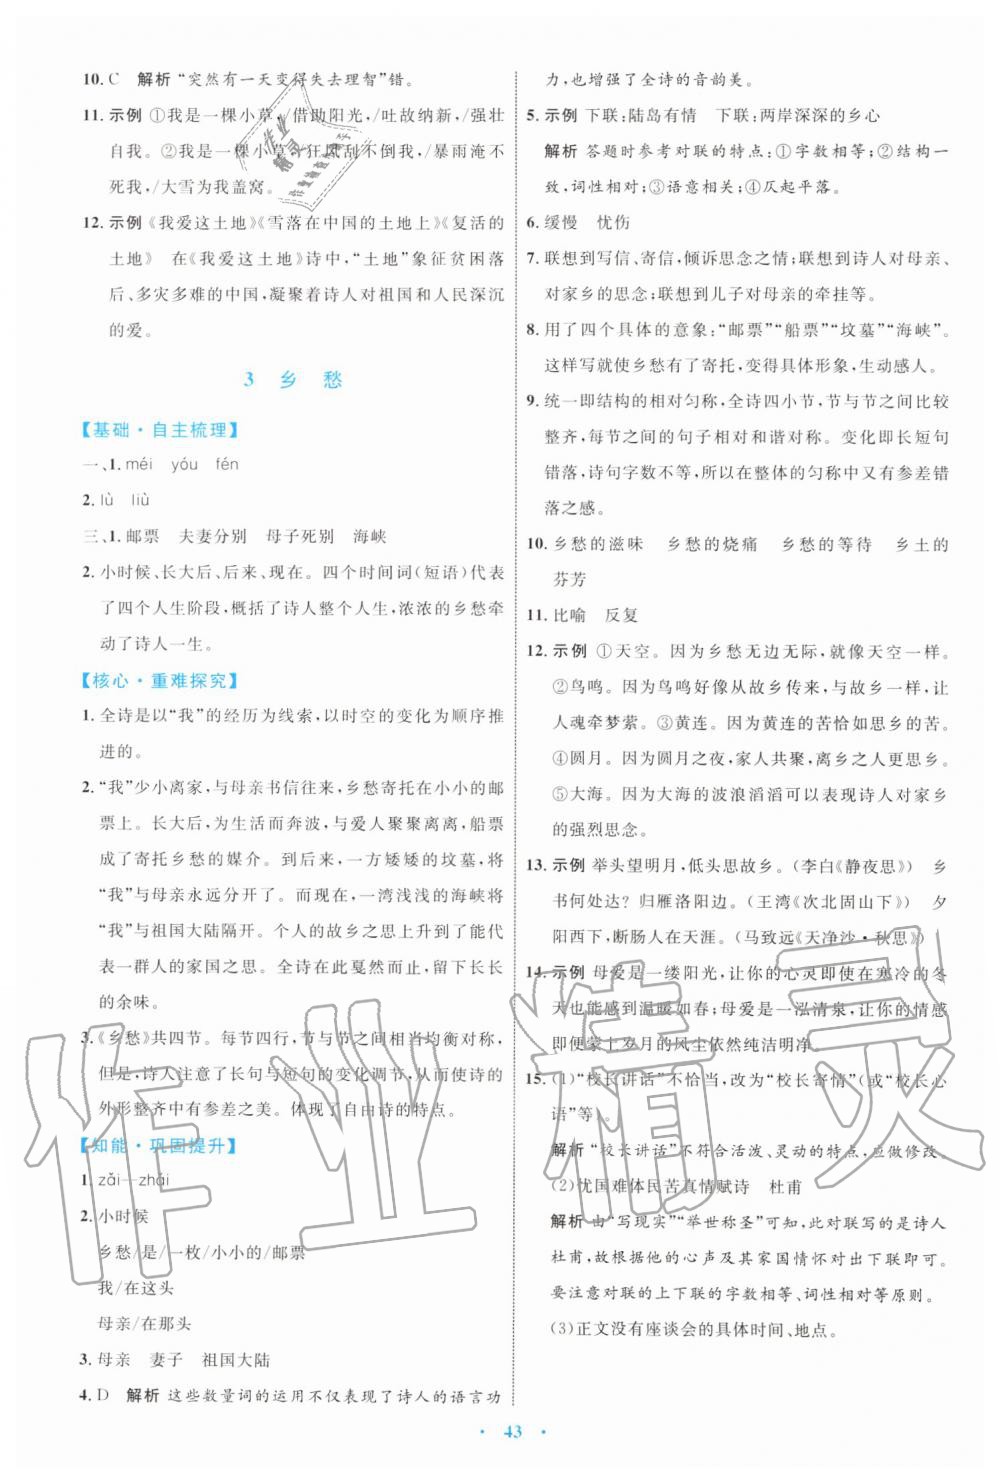 10. C 解析 “突然有一天变得失去理智”错。
11. 示例 ①我是一棵小草,/借助阳光,/吐故纳新,/强壮
自我。②我是一棵小草,/狂风刮不倒我,/暴雨淹不
死我,/大雪为我盖窝。
12. 示例《我爱这土地》《雪落在中国的土地上》《复活的
土地》 在《我爱这土地》诗中,“土地”象征贫困落
后、多灾多难的中国,凝聚着诗人对祖国和人民深沉
的爱。
3 乡 愁
【基础·自主梳理】
一、1. méi yóu fén
2. lù liù
三、1. 邮票 夫妻分别 母子死别 海峡
2. 小时候、长大后、后来、现在。四个时间词(短语)代表
了四个人生阶段,概括了诗人整个人生,浓浓的乡愁牵
动了诗人一生。
【核心·重难探究】
1. 全诗是以“我”的经历为线索,以时空的变化为顺序推
进的。
2. “我”少小离家,与母亲书信往来,乡愁寄托在小小的邮
票上。长大后,为生活而奔波,与爱人聚聚离离,船票
成了寄托乡愁的媒介。到后来,一方矮矮的坟墓,将
“我”与母亲永远分开了。而现在,一湾浅浅的海峡将
“我”与祖国大陆隔开。个人的故乡之思上升到了能代
表一代人的家国之思。全诗在此戛然而止,留下长长
的余味。
3. 《乡愁》共四节。每节四行,节与节之间相当均衡对称,
但是,诗人注意了长句与短句的变化调节,从而使诗的
外形整齐中有参差之美。体现了自由诗的特点。
【知能·巩固提升】
1. zǎi—zhǎi
2. 小时候
乡愁/是/一枚/小小的/邮票
我/在这头
母亲/在那头
3. 母亲 妻子 祖国大陆
4. D 解析 这些数量词的运用不仅表现了诗人的语言功
力,也增强了全诗的音韵美。
5. 示例 下联:陆岛有情 下联:两岸深深的乡心
解析 答题时参考对联的特点:①字数相等;②结构一
致,词性相对;③语意相关;④仄起平落。
6. 缓慢 忧伤
7. 联想到写信、寄信,倾诉思念之情;联想到诗人对母亲、
对家乡的思念;联想到儿子对母亲的牵挂等。
8. 用了四个具体的意象:“邮票”“船票”“坟墓”“海峡”。
这样写就使乡愁有了寄托,变得具体形象,生动感人。
9. 统一即结构的相对匀称,全诗四小节,节与节之间比较
整齐,每节之间的句子相对和谐对称。变化即长短句
错落,诗句字数不等,所以在整体的匀称中又有参差错
落之感。
10. 乡愁的滋味 乡愁的烧痛 乡愁的等待 乡土的
芬芳
11. 比喻 反复
12. 示例 ①天空。因为乡愁无边无际,就像天空一样。
②鸟鸣。因为鸟鸣好像从故乡传来,与故乡一样,让
人魂牵梦萦。③黄连。因为黄连的苦恰如思乡的苦。
④圆月。因为圆月之夜,家人共聚,离乡之人更思乡。
⑤大海。因为大海的波浪滔滔可以表现诗人对家乡
的强烈思念。
13. 示例 举头望明月,低头思故乡。(李白《静夜思》) 乡
书何处达?归雁洛阳边。(王湾《次北固山下》) 夕
阳西下,断肠人在天涯。(马致远《天净沙·秋思》)
14. 示例 母爱是一缕阳光,让你的心灵即使在寒冷的冬
天也能感到温暖如春;母爱是一泓清泉,让你的情感
即便蒙上岁月的风尘依然纯洁明净。
15. (1)“校长讲话”不恰当,改为“校长寄情”(或“校长心
语”等)。
解析 “校长讲话”不符合活泼、灵动的特点,应做修改。
(2)忧国难体民苦真情赋诗 杜甫
解析 由“写现实”“举世称圣”可知,此对联写的是诗人
杜甫,故根据他的心声及其家国情怀对出下联即可。
要注意对联的上下联的字数相等、词性相对等原则。
(3)正文没有座谈会的具体时间、地点。
· 43 ·
作业精灵